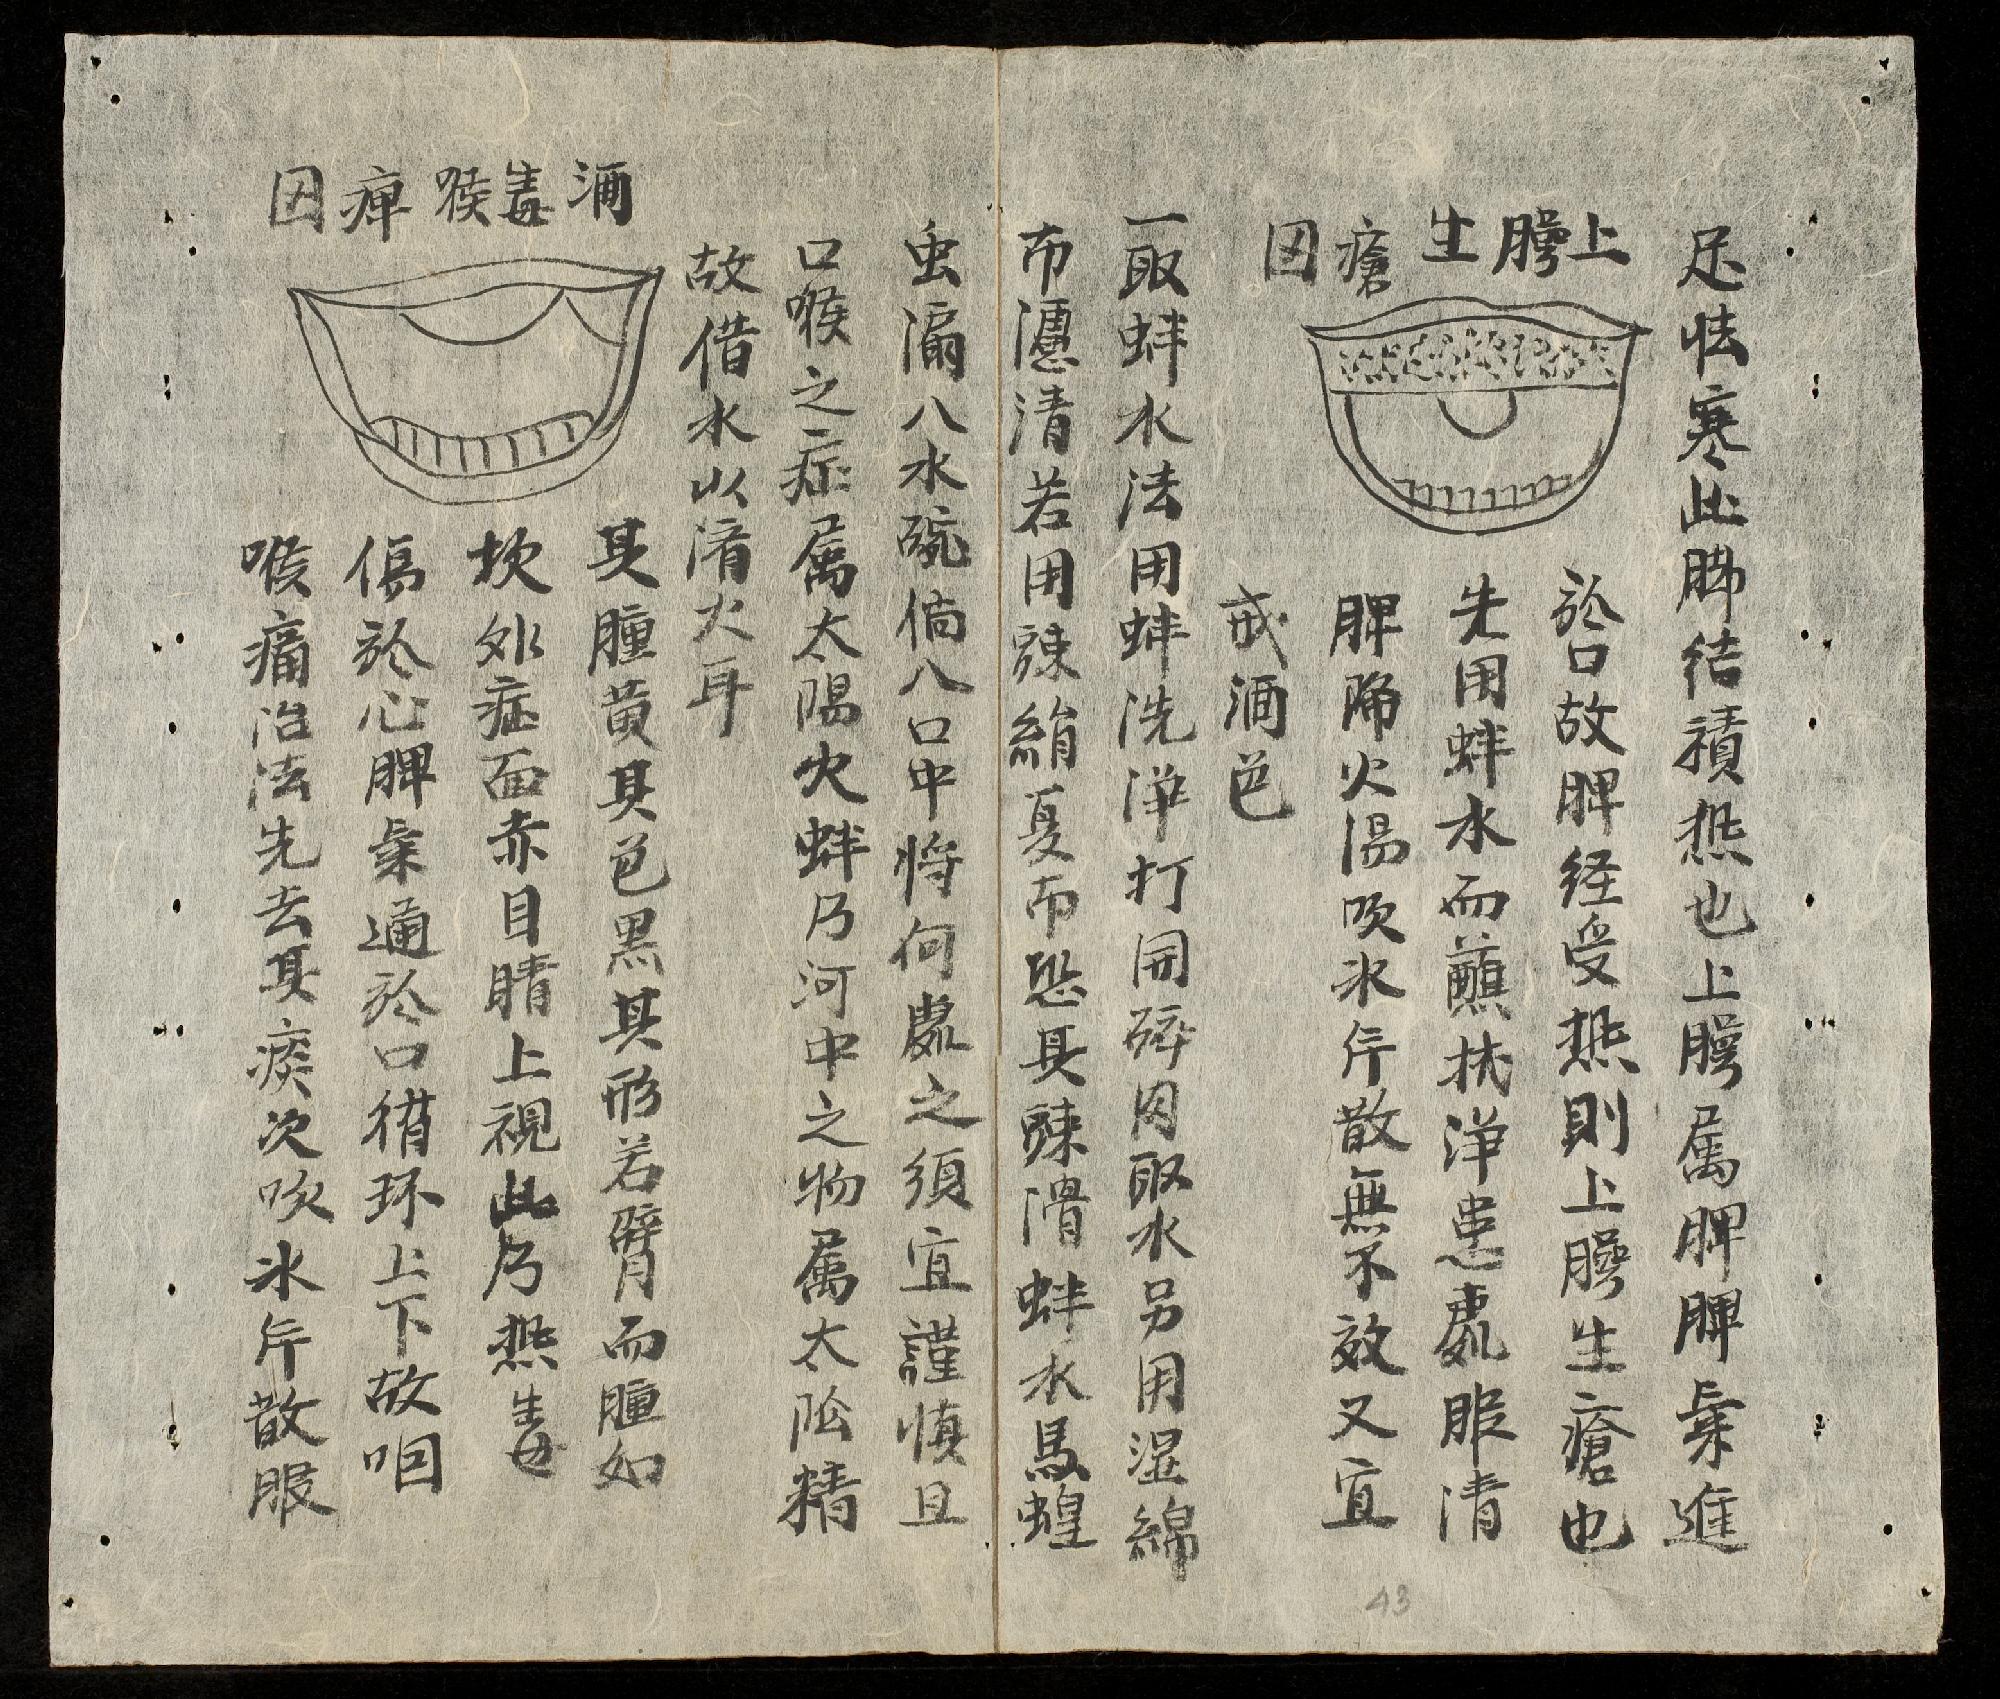 足怯寒此肺結積热也上腭属脾脾氣進
上腭生瘡図
於口故脾経受热則上腭生瘡也
先用蚌水而蘸扰淨患處服清
脾降火湯吹氷片散無不效又宜
戒酒色
一取蚌水法用蚌洗淨打開碎肉取水另用湿綿
布濾清若用疎絹夏布恐其疎滑蚌水馬蝗
虫漏入水碗倘入口中將何處之須宜謹慎且
口喉之症属太陽火蚌乃河中之物属太阴精
故借水以清火耳
酒毒喉痺図
其腫黄其色黑其形若臂而腫如
坎外症面赤目睛上視此乃热毒
傷於心脾氣通於口循环上下故咽
喉痛治法先去其痰次吹氷片散服
43